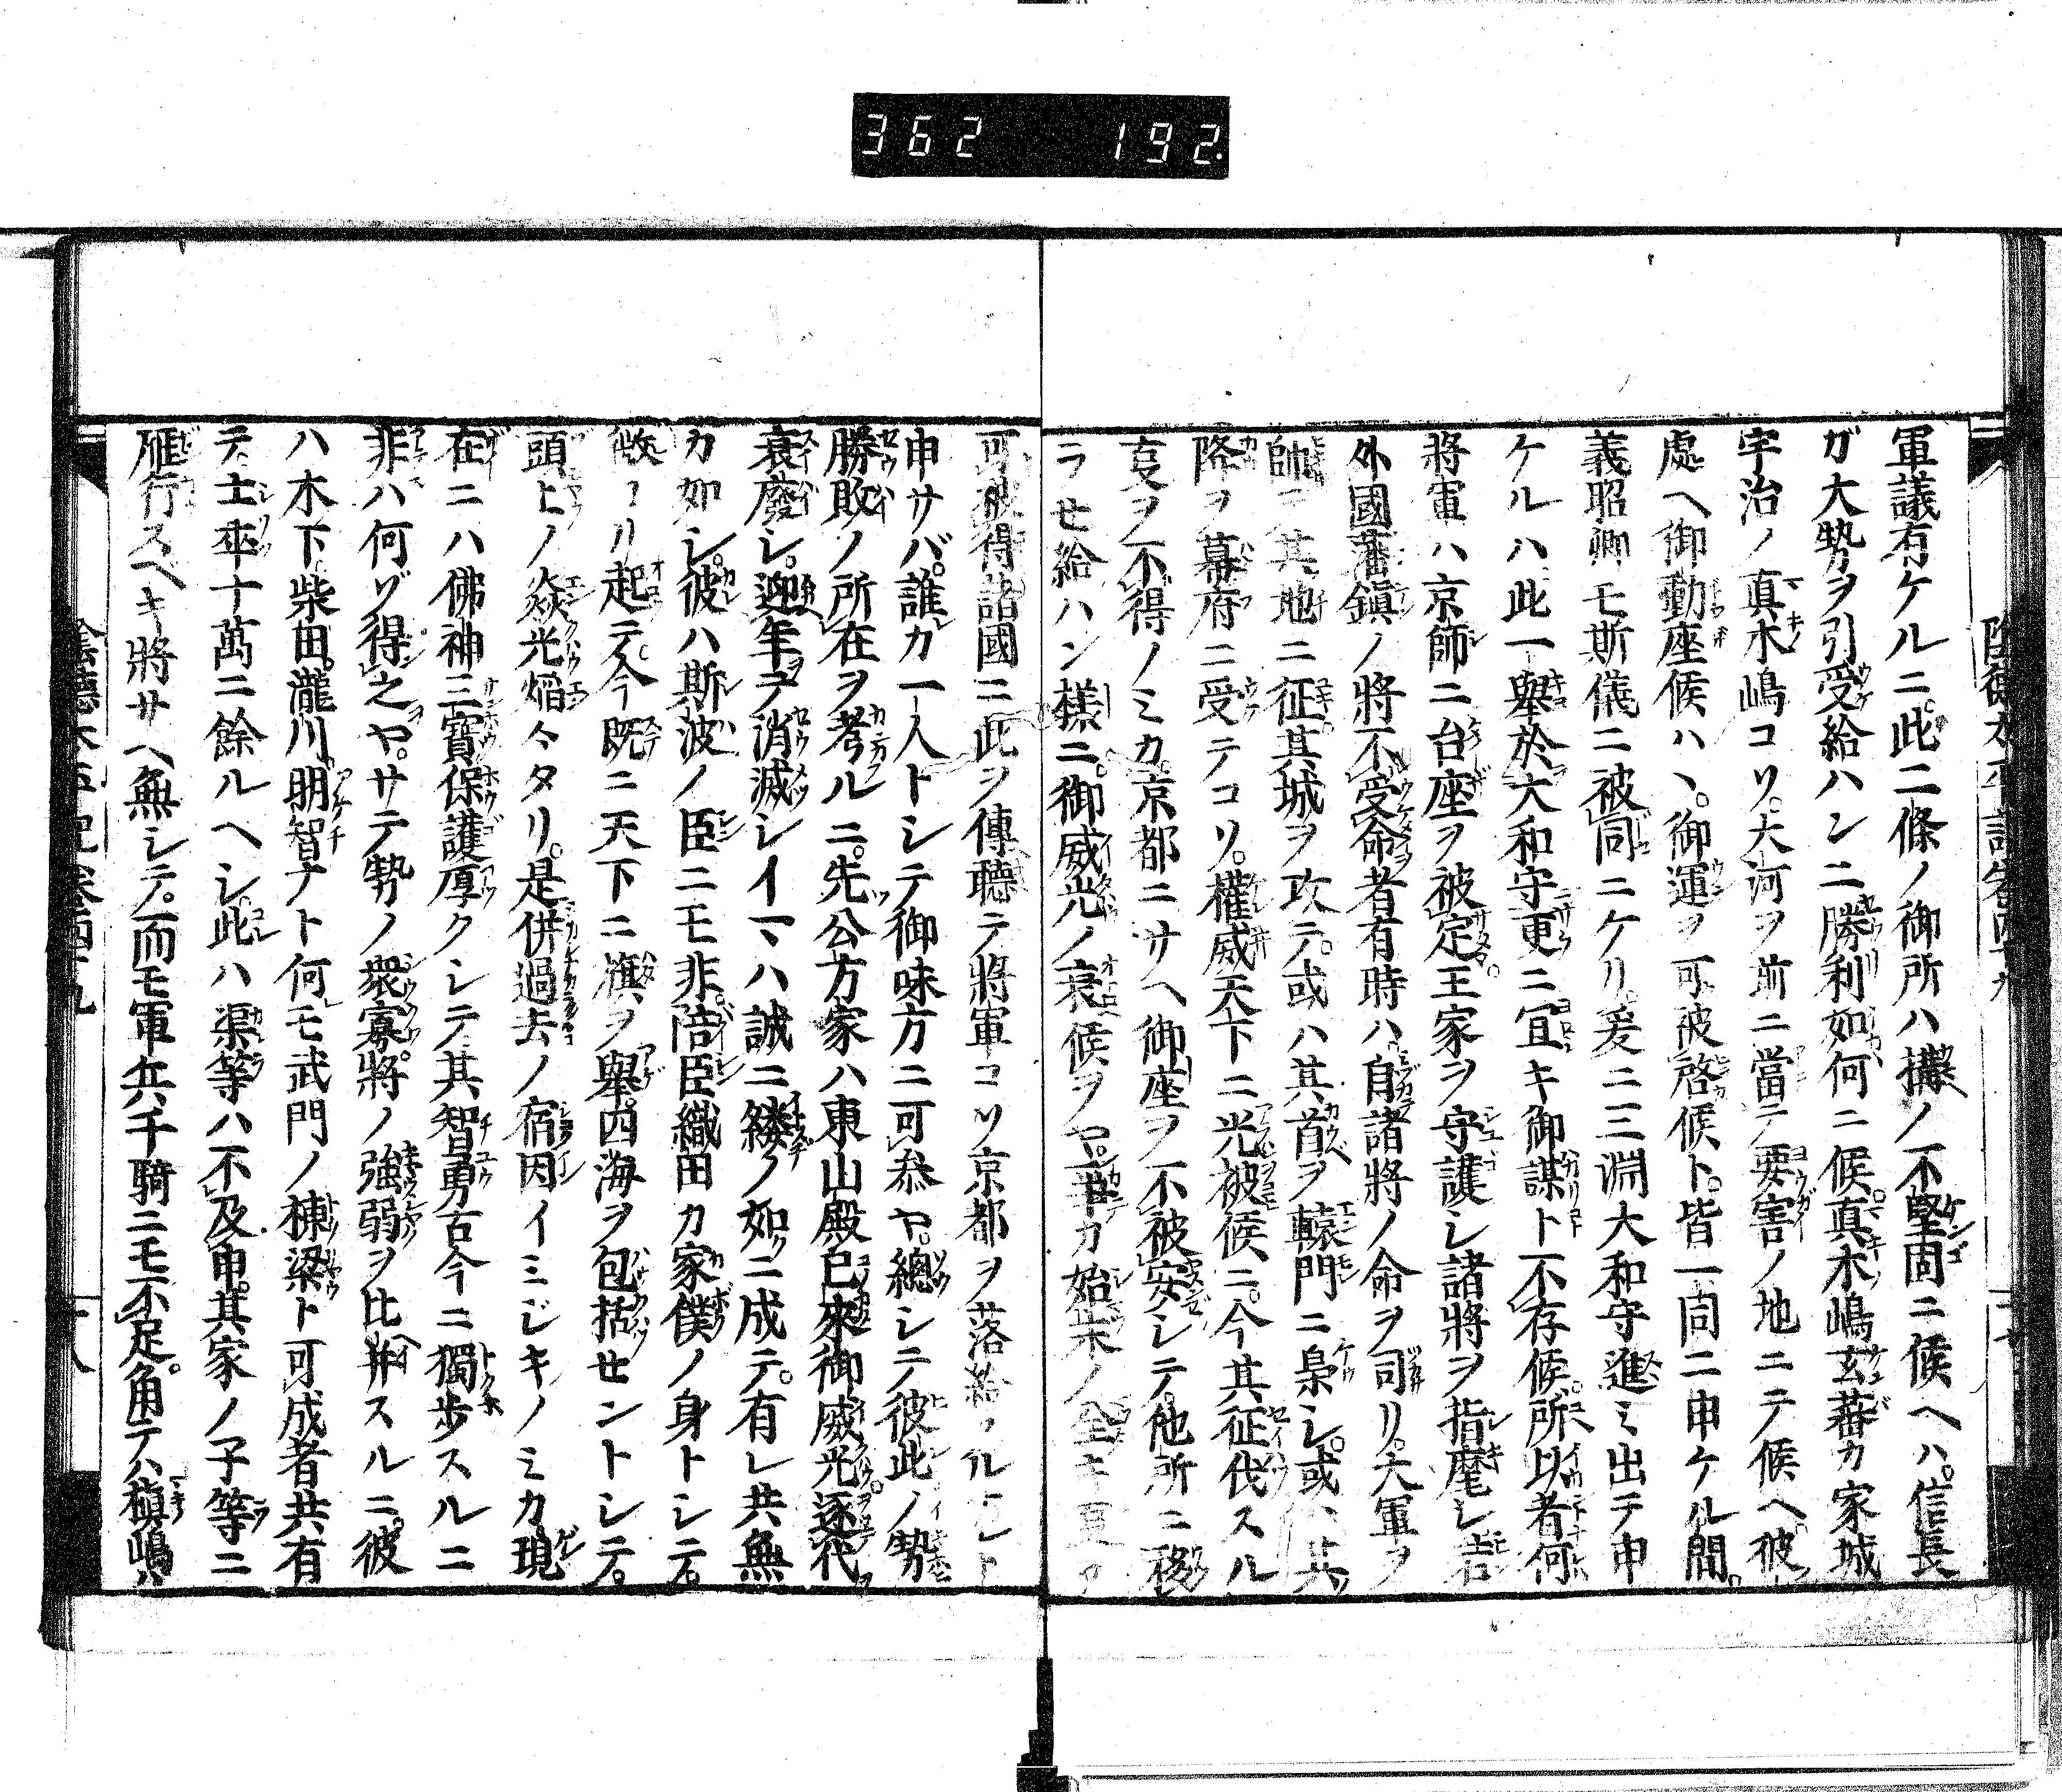 362 192
軍議有ケルニ。此二條ノ御所ハ搆ノ不堅固ニ候ヘハ。信長
ガ大勢ヲ引受給ハンニ勝利如何ニ候真木嶋玄蕃カ家城
宇治ノ真木嶋コソ。大河ヲ前ニ當テ要害ノ地ニテ候ヘ。彼
處ヘ御動座候ハヽ。御運ヲ可被啓候ト。皆一同ニ申ケル間。
義昭卿モ斯儀ニ被同ニケリ爰ニ三淵大和守進ミ出テ申
ケルハ此一舉於大和守更ニ宜キ御謀ト不存候。所以者何
將軍ハ京師ニ台座ヲ被定王家ヲ守護シ諸將ヲ指麾シ若
外國藩鎮ノ將不受命者有時ハ。自諸將ノ命ヲ司リ。大軍ヲ
帥テ其地ニ征其城ヲ攻テ。或ハ其首ヲ轅門ニ梟シ。或ハ其
降ヲ幕府ニ受テコソ。權威天下ニ光被候ニ。今其征伐スル
叓ヲ不得ノミカ。京都ニサヘ御座ヲ不被安シテ。他所ニ移
ラセ給ハン様ニ。御威光ノ衰候ヲヤ。
可被得諸國ニ此ヲ傳聽テ將軍コソ京都ヲ落給
申サバ。誰カ一人トシテ御味方ニ可参ヤ。總シテ彼此ノ勢
勝敗ノ所在ヲ考ルニ。先公方家ハ東山殿已來御威光逐代
衰廢シ。迎年テ消滅シイマハ誠ニ縷ノ如ニ成テ。有レ共無
カ如シ。彼ハ斯波ノ臣ニモ非。陪臣織田カ家僕ノ身トシテ。
起テ。今既ニ天下ニ旗ヲ舉。四海ヲ包括セントシテ。
頭上ノ焱光熖々タリ。是併過去ノ宿因イミジキノミカ現
在ニハ佛神三寳保護厚クシテ其智勇古今ニ獨歩スルニ
非ハ何ゾ得之ヤ。サテ勢ノ衆寡。將ノ強弱ヲ比并スルニ。彼
ハ木下。柴田。瀧川。明智ナト何モ武門ノ棟梁ト可成者共有
テ士卒十萬ニ餘ルヘシ此ハ渠等ハ不及申。其家ノ子等ニ
雁行スヘキ將サヘ無シテ。而モ軍兵千騎ニモ不足。角テハ槇嶋